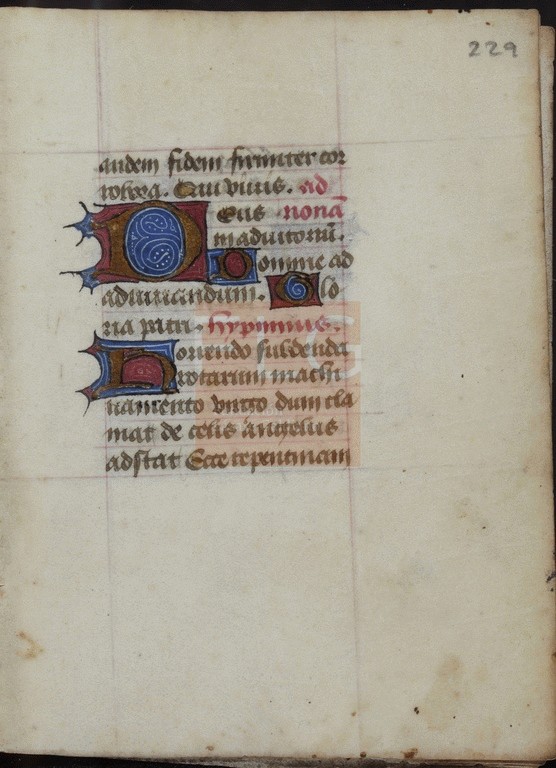 229
audem fidem firmiter cor
robora. Qui viuis. ad
Deus nonā
in adiutoriū.
Domine ad
adiuuandum. Glo
ria patri. hypmnus.
Horrendo subdenda
rotarum machi
namento virgo dum cla
mat de celis angelus
adstat Ecce repentinam